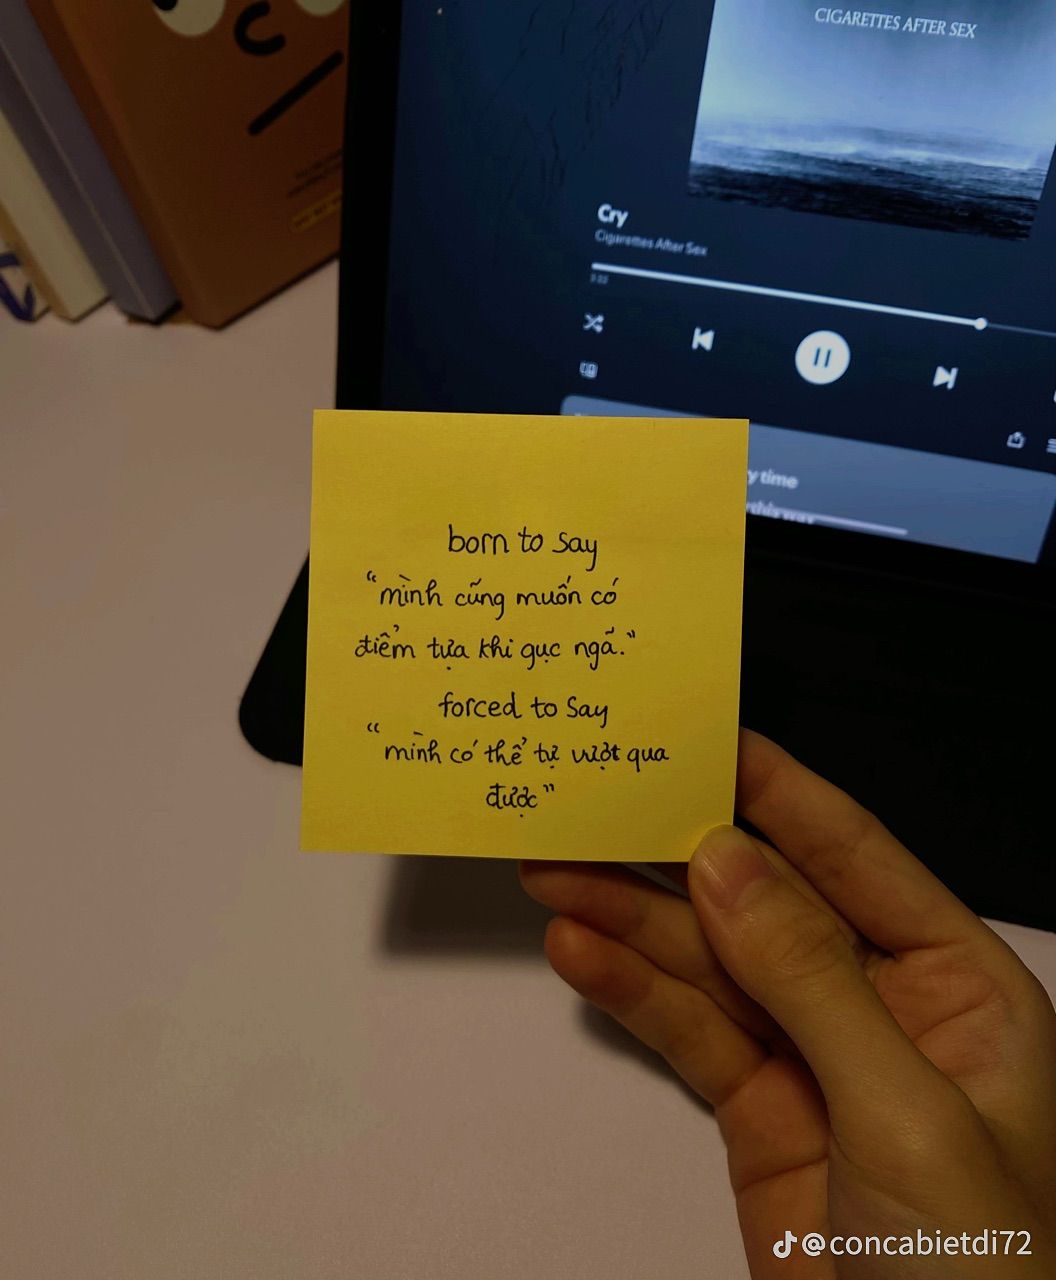 CIGARETTES AFTER SEX
Cry
Cigarettes After Sex
3:22
y time
this way
born to say
“mình cũng muốn có
điểm tựa khi gục ngã.”
forced to say
“mình có thể tự vượt qua
được”
@concabietdi72